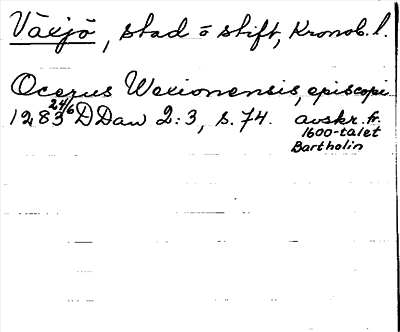 Växjö, stad o stift, Kronob. l.
Ocerus Wexionensis, episcopi
1283 24/6 DDan 2:3, s. 74. avskr. fr.
1600-talet
Bartholin